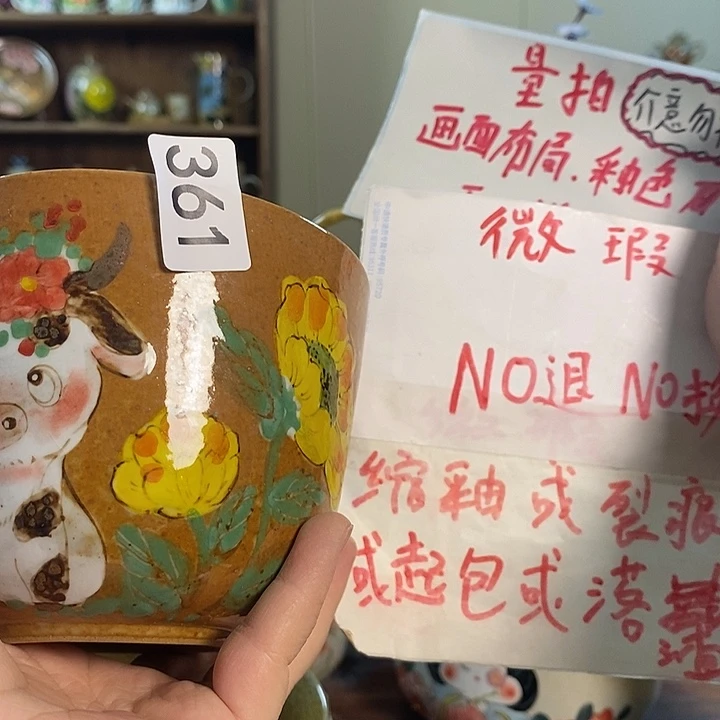 361
量拍
介意勿
画面布局.釉色
微瑕
NO退 NO换
缩釉或裂痕
或起包或落